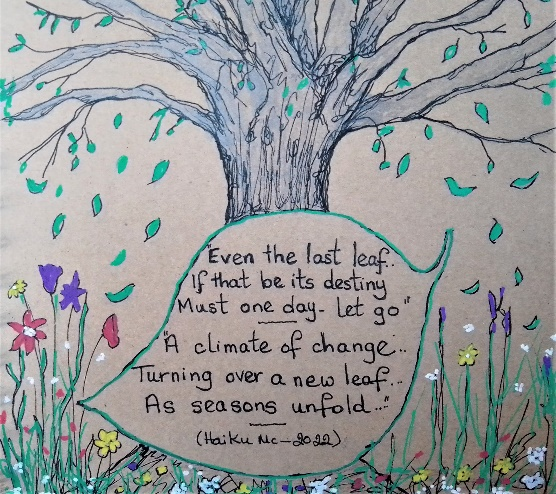 "Even the last leaf..
If that be its destiny
Must one day- let go"
"A climate of change..
Turning over a new leaf...
As seasons unfold..."
(Haiku Mc-2022)